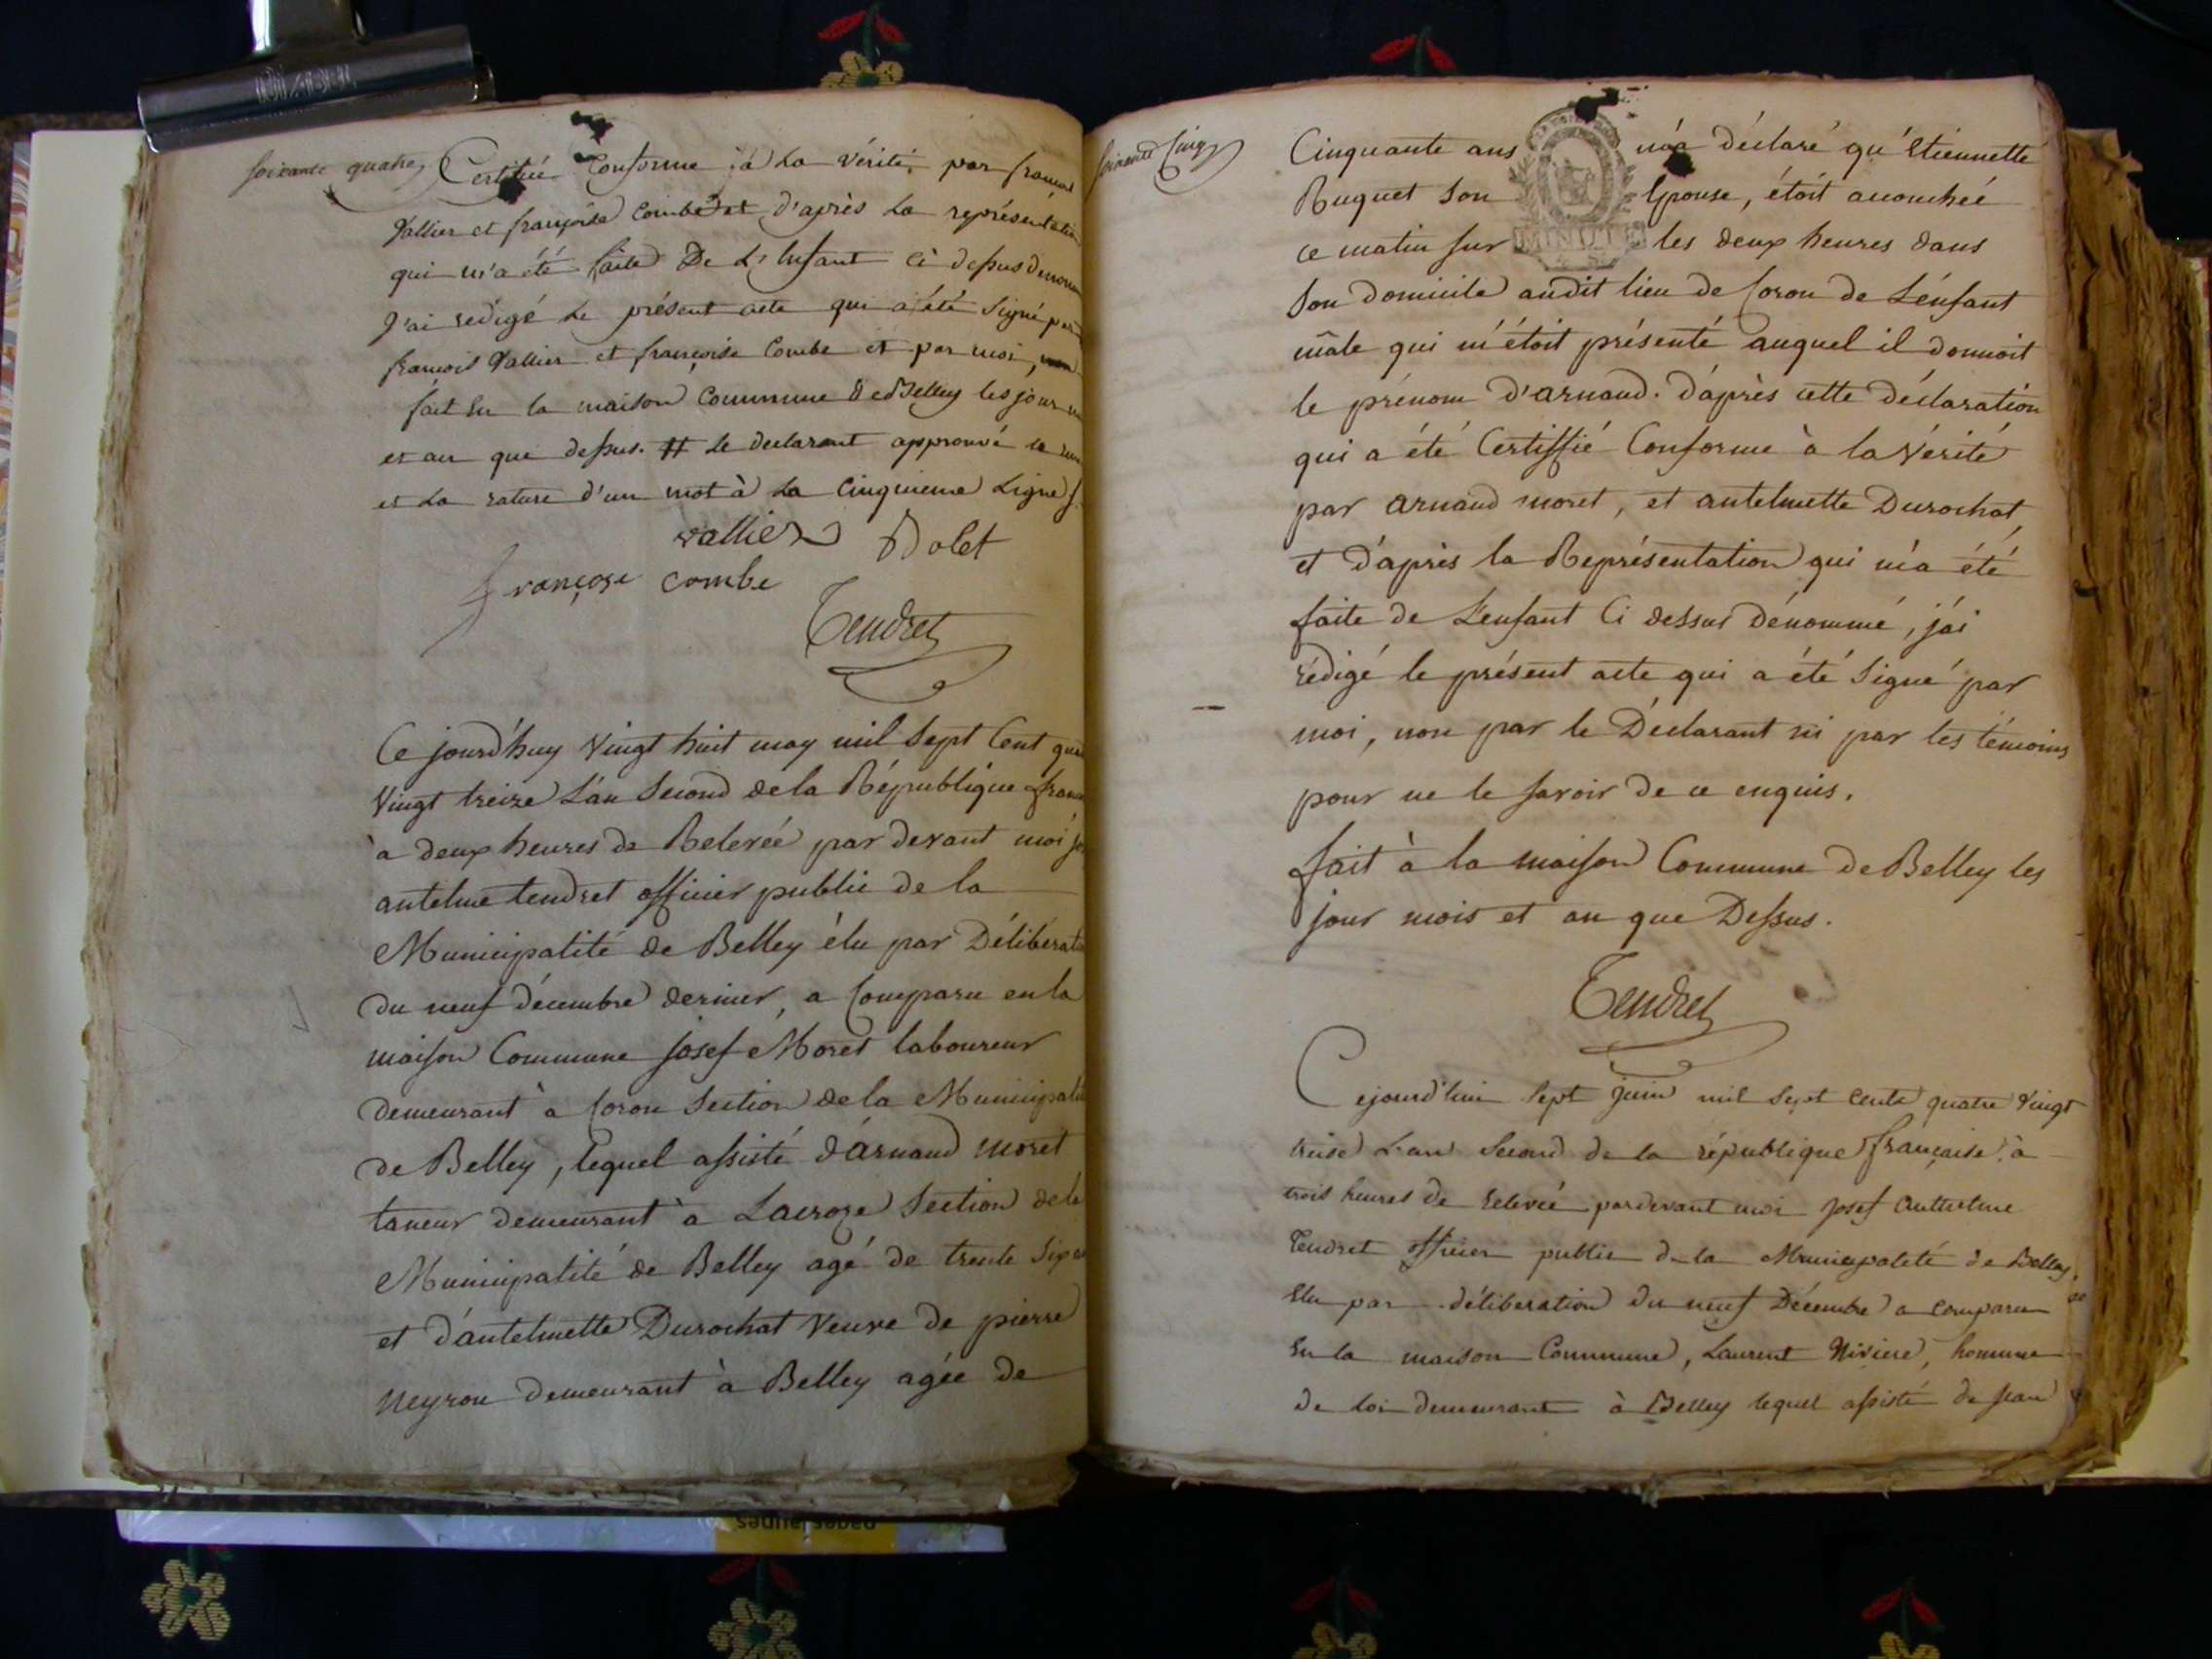 soixante quatre
Certifié Conforme à la vérité, par françois
Vallier et françoise Combe et d'après la représentation
qui m'a été faite De L'Enfant ci dessus dénommé
J'ai redigé le présent acte qui a été Signé par
françois Vallier et françoise Combe et par moi,
fait En la maison Commune De Belley les jour
et an que dessus. # le declarant approuvé
et la rature d'un mot à la Cinquieme Ligne
vallier Dolet
françoise combe
Tendret
Ce jourd'huy Vingt huit may mil Sept Cent
Vingt treize L'an Second de la République
à deux heures de Relevée par devant moi
antelme tendret officier public de la
Municipalité de Belley élu par Délibérat
du neuf décembre dernier, a Comparu en la
maison Commune Josef Moret laboureur
demeurant à Coron Section de la Municipalité
de Belley, lequel assisté d'Arnaud Moret
taneur demeurant à Lacroze Section de la
Municipalité de Belley agé de trente Six
et d'antelmette Durochat Veuve de pierre
Neyron demeurant à Belley agée de
soixante Cinq
Cinquante ans m'a déclaré qu'Etiennette
Ruguet Son Epouse, étoit accouchée
ce matin Sur les deux heures dans
Son domicile audit lieu de Coron de L'enfant
mâle qui m'étoit présenté auquel il donnoit
le prénom d'arnaud. d'après cette déclaration
qui a été Certiffié Conforme à la Vérité
par arnaud moret, et antelmette Durochat,
et d'après la Représentation qui m'a été
faite de L'enfant Ci dessus dénommé, j'ai
rédigé le présent acte qui a été Signé par
moi, non par le Déclarant ni par les témoins
pour ne le Savoir de ce enquis.
fait à la maison Commune de Belley les
jour mois et an que Dessus.
Tendret
Cejourd'hui Sept Juin mil Sept Cents quatre Vingt
treise L'an Second de la république française à
trois heures de relevée pardevant moi Josef Anthelme
Tendret officier public de la Municipalité de Belley,
Elu par déliberation du neuf Décembre a comparu
En la maison Commune, Laurent Nivière, homme
de loi demeurant à Belley lequel assisté de Jean